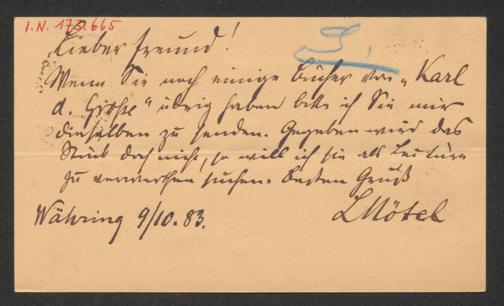 I.N. 173.665
Lieber Freund!
Wenn Sie noch einige Bücher von „Karl
d. Große“ übrig haben bitte ich Sie mir
dieselben zu senden. Gegeben wird das
Stück doch nicht, so will ich sie als Lectüre
zu verwerthen suchen. Besten Gruß
Währing 9/10. 83. LMötel